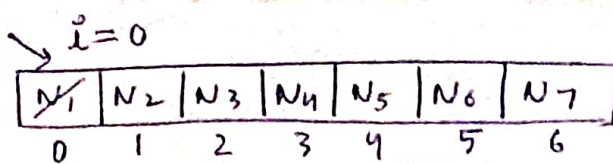 i=0
N1 N2 N3 N4 N5 N6 N7
0 1 2 3 4 5 6